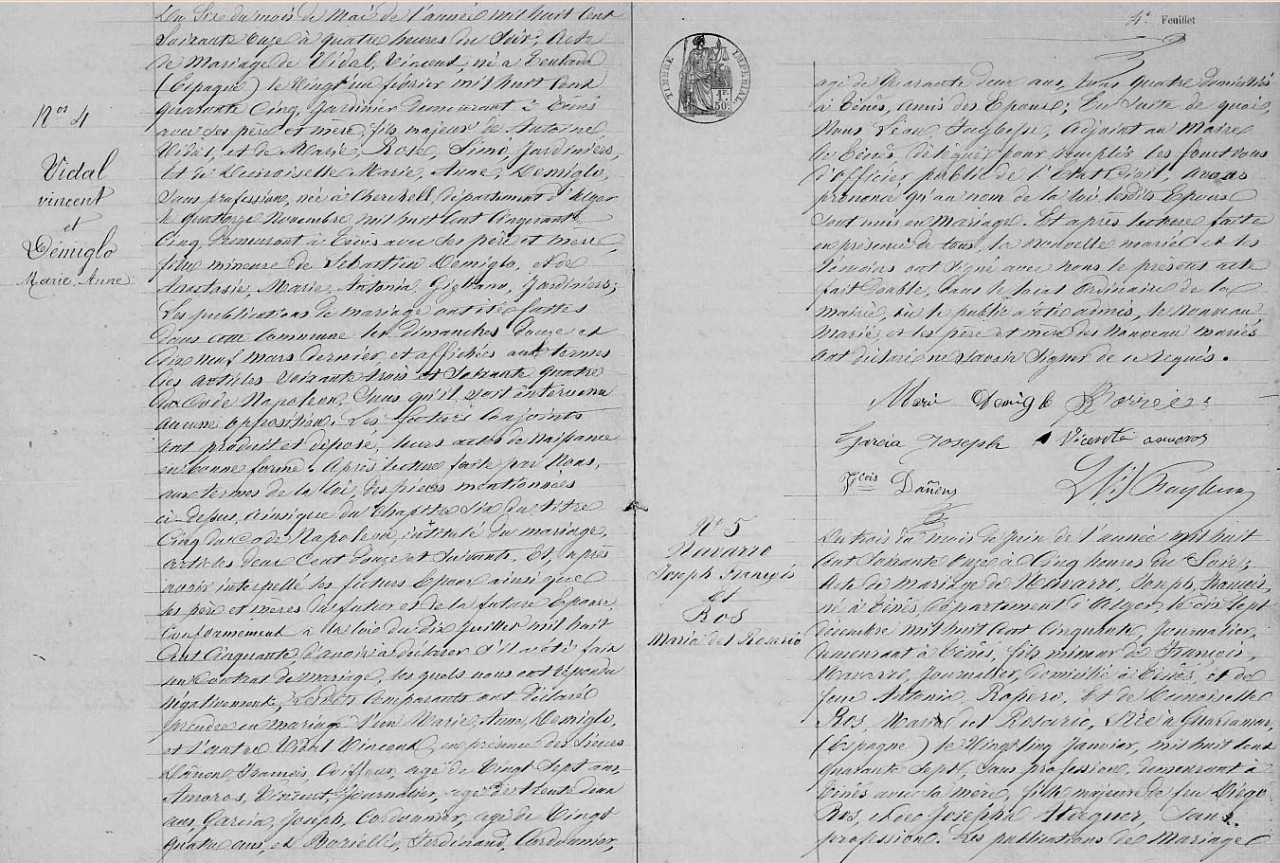 Nos 4
Vidal
vincent
et
Démiglo
Marie, Anne
Du Six du mois de Mai de l'année mil huit cent
Soixante Onze à quatre heures du Soir, Acte
de Mariage de Vidal, Vincent, né à
(Espagne) le Vingt un février mil huit cent
quarante Cinq, Jardinier demeurant à Ténès
avec ses père et mère, fils majeur de Antoine
Vidal, et de Marie, Rose, Simo, Jardiniers,
Et de Demoiselle Marie, Anne, Demiglo,
Sans profession, née à Cherchell, département d'Alger
le quatorze Novembre mil huit cent Cinquante
Cinq, demeurant à Ténès avec ses père et mère
fille mineure de Sébastien Demiglo, et de
Anastasie, Marie, Antonia, Jardiniers;
Les publications de mariage ont été faites
dans cette Commune les dimanches douze et
dix neuf Mars dernier, et affichées aux termes
des articles Soixante trois et Soixante quatre
du Code Napoléon, Sans qu'il soit intervenu
aucune opposition. Les futurs Conjoints
ont produit et déposé, leurs actes de Naissance
en bonne forme. Après lecture faite par Nous,
aux termes de la loi, des pièces mentionnées
ci-dessus, ainsi que du Chapitre Six du titre
Cinq du Code Napoléon intitulé du mariage,
articles deux Cent douze et Suivants. Et, après
avoir interpellé les futurs Epoux ainsi que
les père et mères du futur et de la future Epouse
Conformément à la loi du Dix Juillet mil huit
Cent Cinquante, d'avoir à déclarer s'il a été fait
un Contrat de mariage, les quels nous ont répondu
négativement, Lesdits Comparants ont déclaré
prendre en mariage l'un Marie, Anne, Demiglo,
et l'autre Vidal Vincent, en présence des Sieurs
François, Coiffeur, agé de Vingt Sept ans,
Amoros, Vincent, Journalier, agé de trente deux
ans, Garcia, Joseph, Cordonnier, agé de Vingt
quatre ans, et Ferdinand, Cordonnier,
4e Feuillet
TIMBRE IMPÉRIAL
1F 50c
agé de Quarante deux ans, tous quatre domiciliés
à Ténès, amis des Epoux; En Suite de quoi,
Nous Léon Adjoint au Maire
de Ténès, délégué pour remplir les fonctions
d'officier public de l'Etat Civil, avons
prononcé qu'au nom de la loi lesdits Epoux
Sont unis en Mariage. Et après lecture faite
en présence de tous, la nouvelle mariée et les
témoins ont signé avec nous le présent acte
fait double, dans le local Ordinaire de la
mairie, où le public a été admis, le Nouveau
Marié, et les père et mère des Nouveau mariés
ont déclaré ne savoir Signer de ce requis.
Mari Demiglo
Garcia Joseph Vicente amoros
Fçois
No 5
Navarro
Joseph François
et
Ros
Maria del Rosario
Du trois du mois de Juin de l'année mil huit
cent Soixante Onze à Cinq heures du Soir;
Acte de Mariage de Navarro, Joseph, François,
né à Ténès, département d'Alger, le dix Sept
décembre mil huit Cent Cinquante, Journalier,
demeurant à Ténès, fils mineur de François,
Navarro, Journalier, domicilié à Ténès, et de
feue Antonia, Et de Demoiselle
Ros, Maria del Rosario, Née à Guardamar,
(Espagne) le Vingt Cinq Janvier, mil huit Cent
quarante Sept, Sans profession, demeurant à
Ténès avec Sa mère, fille majeure de feu Diego
Ros, et de Josepha Sans
profession. Les publications de Mariage